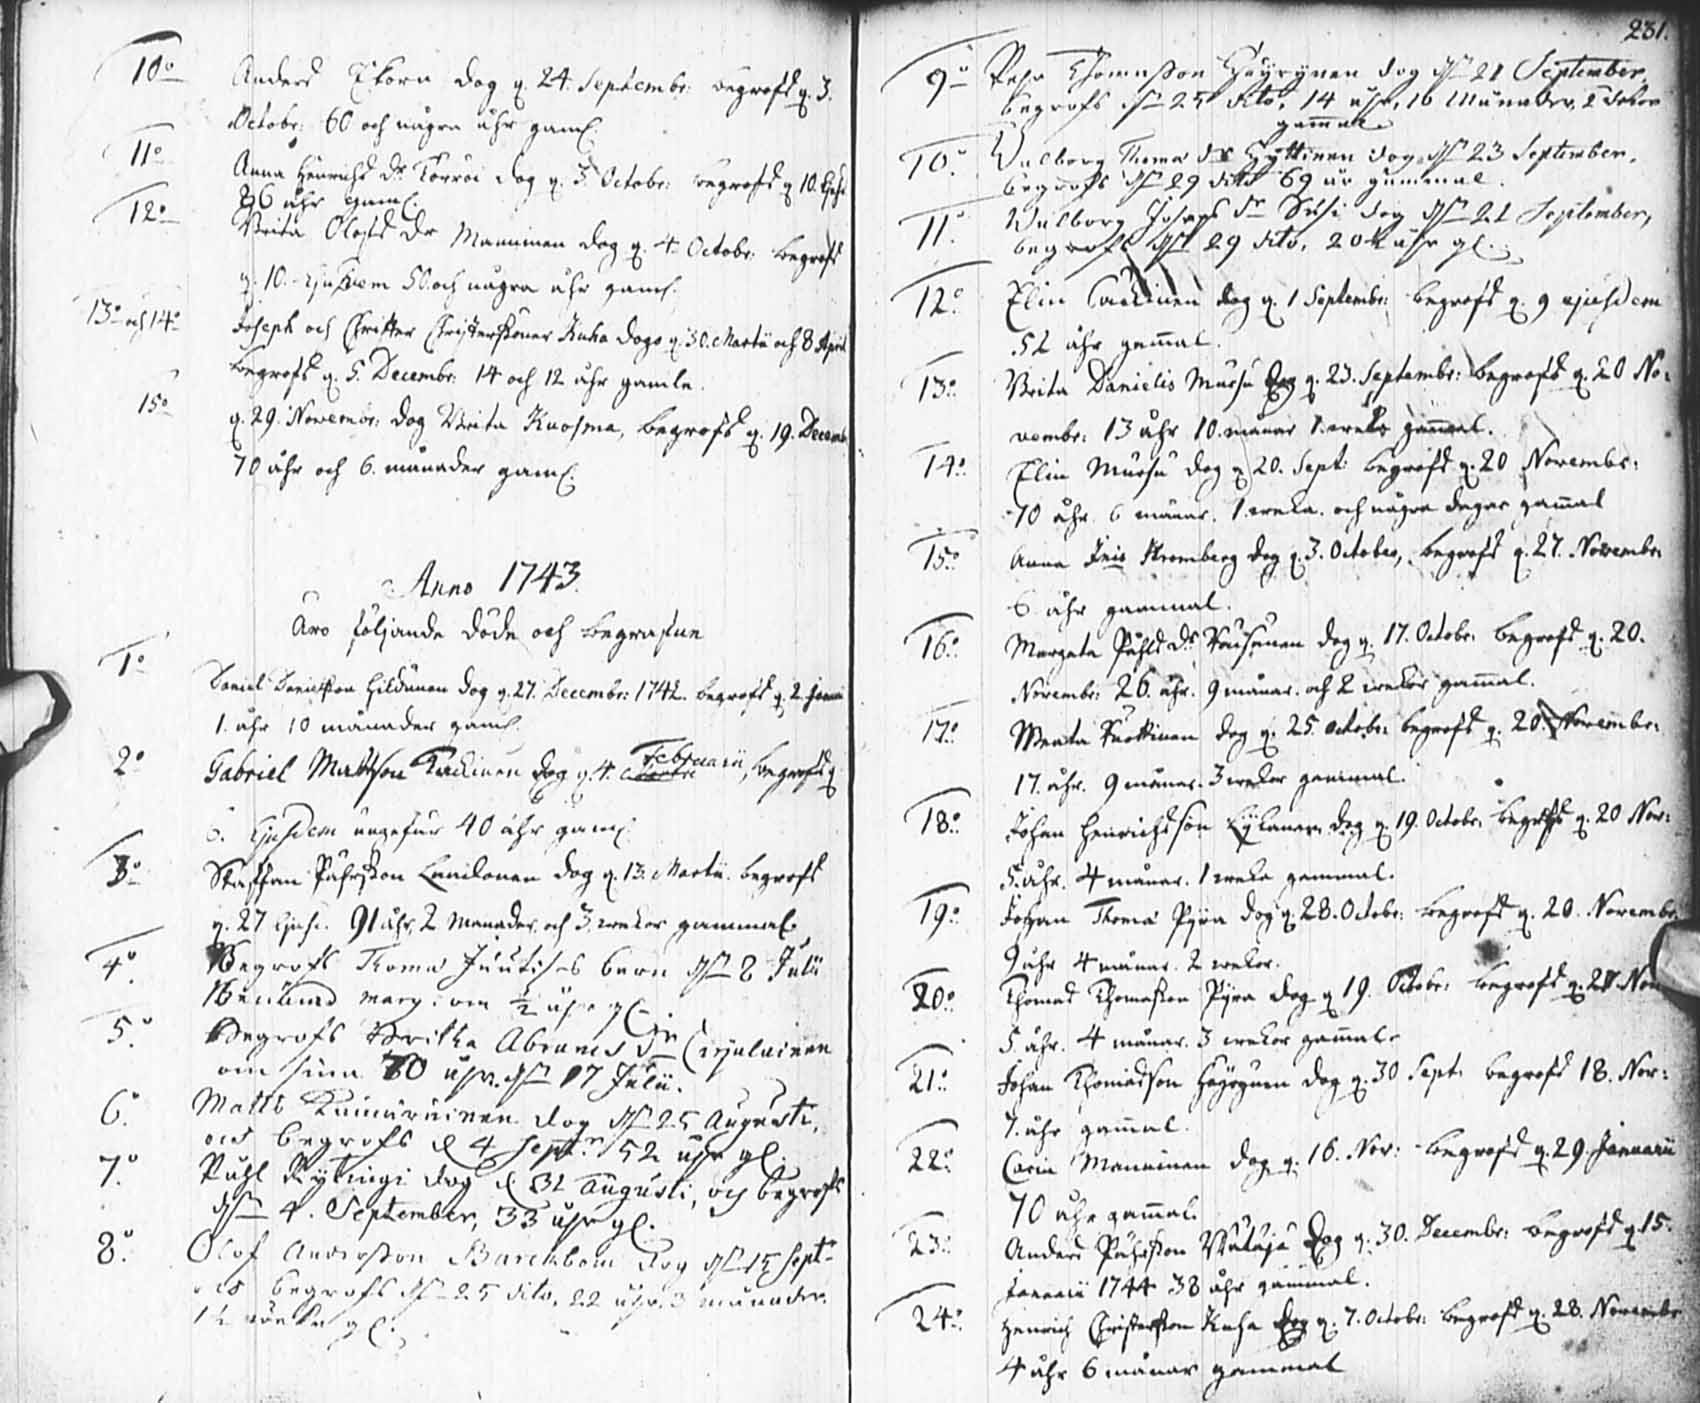 10o Anders Ikorn dog q. 24. Septembr: begrofs q. 3.
Octobr: 60 och några åhr gaml.
11o Anna Henrichs Dr Korroi dog q. 3 Octobr: begrofs q 10. Ejusd
36 åhr gaml.
12o Brita Olofs Dr Manninen dog q. 4 Octobr: begrofs
q. 10. Ejusdem 50 och några åhr gaml.
13o och 14o Joseph och Christer Christersöner Kuha dogo q. 30. Martii och 8 April
begrofs q. 5. Decembr: 14 och 12 åhr gamle.
15o q. 29. Novembr: dog Brita Kuosma, begrofs q. 19. Decemb:
70 åhr och 6. månader gaml.
Anno 1743.
Äro följande döde och begrafne
1o Daniel Danielsson Hildunen dog q. 27. Decembr: 1742. begrofs q. 2. Janu
1. åhr 10 månader gaml.
2o Gabriel Mattson Kackinen dog q. 4. Februarii, begrofs q.
6. Ejusdem ungefär 40 åhr gaml.
3o Staffan Påhrsson Laidonen dog q. 13. Martii. begrofs
q. 27 Ejusd. 91 åhr, 2 Månader och 3. weckor gammal.
4o Begrofs Thoma Juutises barn dn 2 Julii
mary: om ½ åhr gl.
5o Begrofs Britha Abrams Dr Carjalainen
om sina 70 åhr. dn 17 Julii.
6o Matts Kaimurainen dog dn 25 Augusti,
och begrofs d 4 Septr. 52 åhr gl.
7o Påhl Kylingi dog d 31 Augusti, och begrofs
dn 4. September, 33 åhr gl.
8o Olof Andersson Barckbom dog dn 15 Septr
och begrofs dn 25 dito, 22 åhr, 3 månader
1½ wecka gl.
231.
9o Pehr Thomasson Häyrynen dog dn 21 September,
begrofs dn 25 dito, 14 åhr, 10 Månader,
gammal.
10o Walborg Thoma dr Hyttinen dog dn 23 September,
begrofs dn 29 dito 69 åhr gammal.
11o Walborg Josephs dr Susi dog dn 21 September,
begrofs dn 29 dito, 20½ åhr gl.
12o Elin Cackinen dog q. 1 Septembr: begrofs q. 9 ejusdem
52 åhr gammal.
13o Brita Danielis Mursu dog q. 23. Septembr: begrofs q. 20 No-
vembr: 13 åhr 10. månar 1. weko gammal.
14o Elin Mursu dog q 20. Sept: begrofs q. 20 Novembr:
70 åhr. 6 månar. 1. weka. och några dagar gammal
15o Anna Stromberg dog q. 3. October, begrofs q. 27. Novembr:
6 åhr gammal.
16o Margeta Påhls Dr Rausunen dog q. 17. Octobr: begrofs q. 20.
Novembr: 26. åhr. 9 månar. och 2 wekor gammal.
17o Marta Turkinen dog q. 25. octobr: begrofs q. 20. Novembr:
17. åhr. 9 månar. 3 wekor gammal.
18o Johan Henrichsson Eykanen dog q. 19. Octobr: begrofs q. 20 Nov:
5. åhr. 4 månar. 1 weka gammal.
19o Johan Thoma Pyra dog q. 28. Octobr: begrofs q. 20. Novembr:
9 åhr 4 månar. 2 wekor.
20o Thomas Thomasson Pyra dog q 19. Octobr: begrofs q. 20 Nov
5. åhr. 4 månar. 3 wekor gammal.
21o Johan Thomasson Häyrynen dog q. 30 Sept: begrofs 18. Nov:
7. åhr gammal.
22o Carin Manninen dog q. 16. Nov: begrofs q. 29. Januarii
70 åhr gammal.
23o Anders Påhrsson Wataja dog q. 30. Decembr: begrofs q 15.
Januarii 1744 38 åhr gammal.
24o Henrich Christersson Kuha dog q. 7. Octobr: begrofs q. 28. Novembr
4 åhr 6 månar gammal